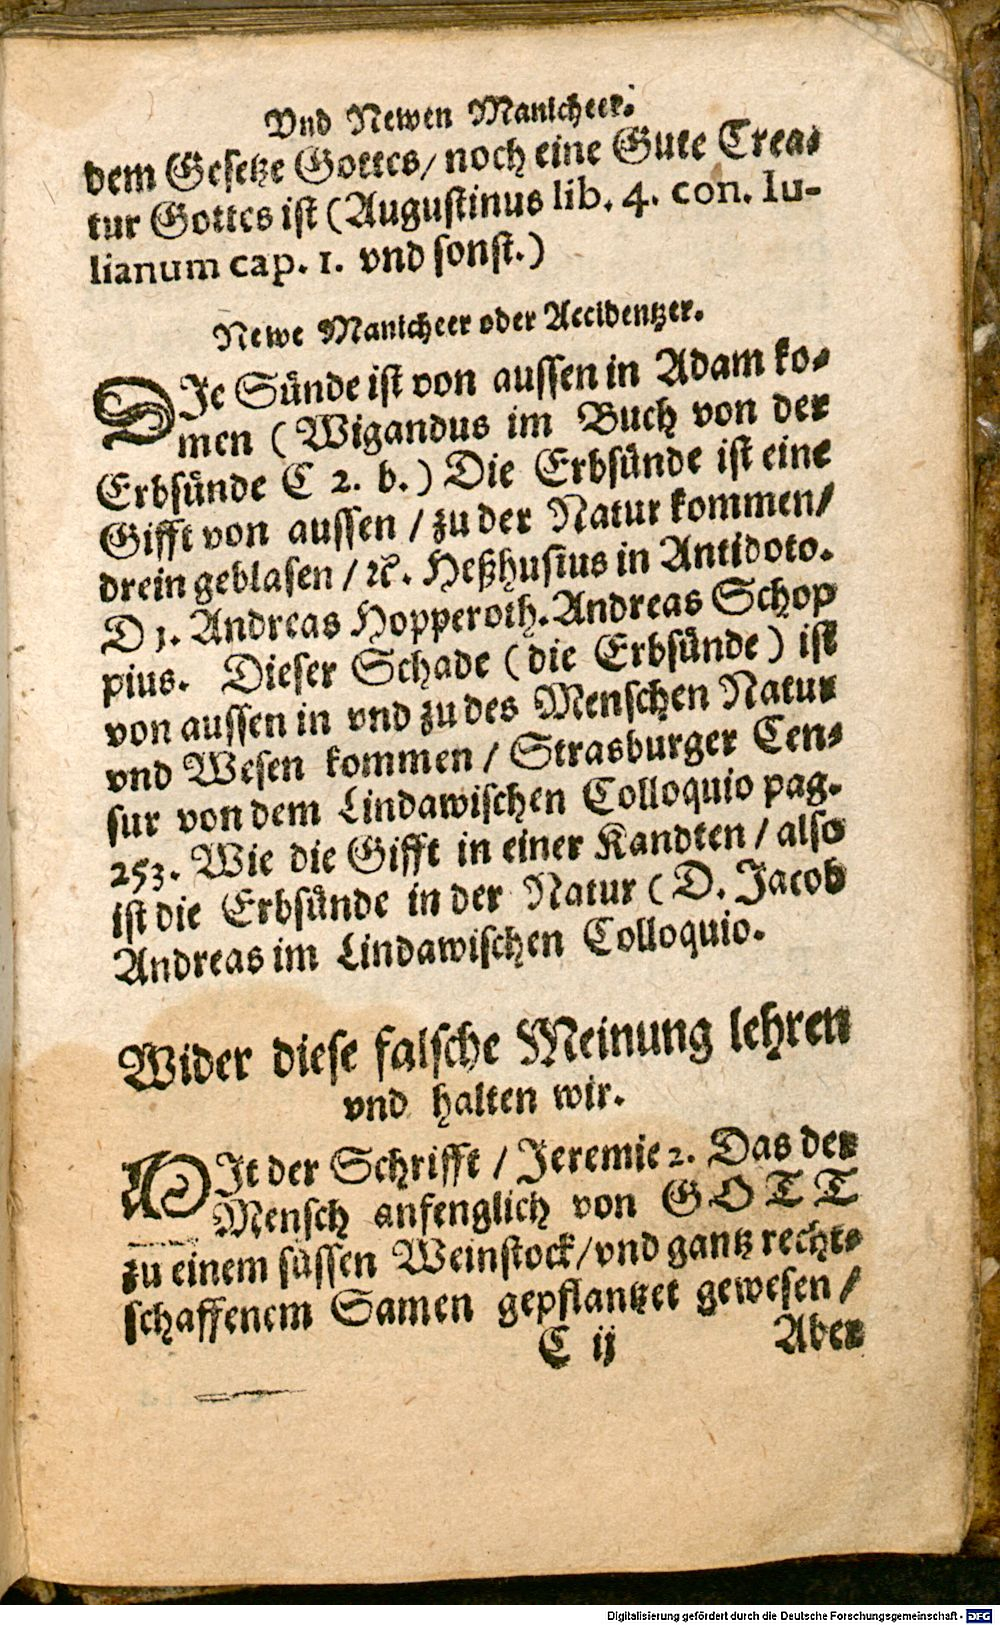 Vnd Newen Manicheer.
dem Gesetze Gottes/ noch eine Gute Crea-
tur Gottes ist (Augustinus lib. 4. con. Iu-
lianum cap. 1. vnd sonst.)
Newe Manicheer oder Accidentzer.
DIe Sünde ist von aussen in Adam ko-
men (Wigandus im Buch von der
Erbsünde C 2. b.) Die Erbsünde ist eine
Gifft von aussen / zu der Natur kommen/
drein geblasen / ꝛc. Heßhusius in Antidoto.
D 1. Andreas Hopperoth. Andreas Schop
pius. Dieser Schade (die Erbsünde) ist
von aussen in vnd zu des Menschen Natur
vnd Wesen kommen / Strasburger Cen-
sur von dem Lindawischen Colloquio pag.
253. Wie die Gifft in einer Kandten / also
ist die Erbsünde in der Natur (D. Jacob
Andreas im Lindawischen Colloquio.
Wider diese falsche Meinung lehren
vnd halten wir.
MIt der Schrifft / Jeremie 2. Das der
Mensch anfenglich von GOTT
zu einem süssen Weinstock/vnd gantz recht-
schaffenem Samen gepflantzet gewesen /
C ij Aber
Digitalisierung gefördert durch die Deutsche Forschungsgemeinschaft - DFG